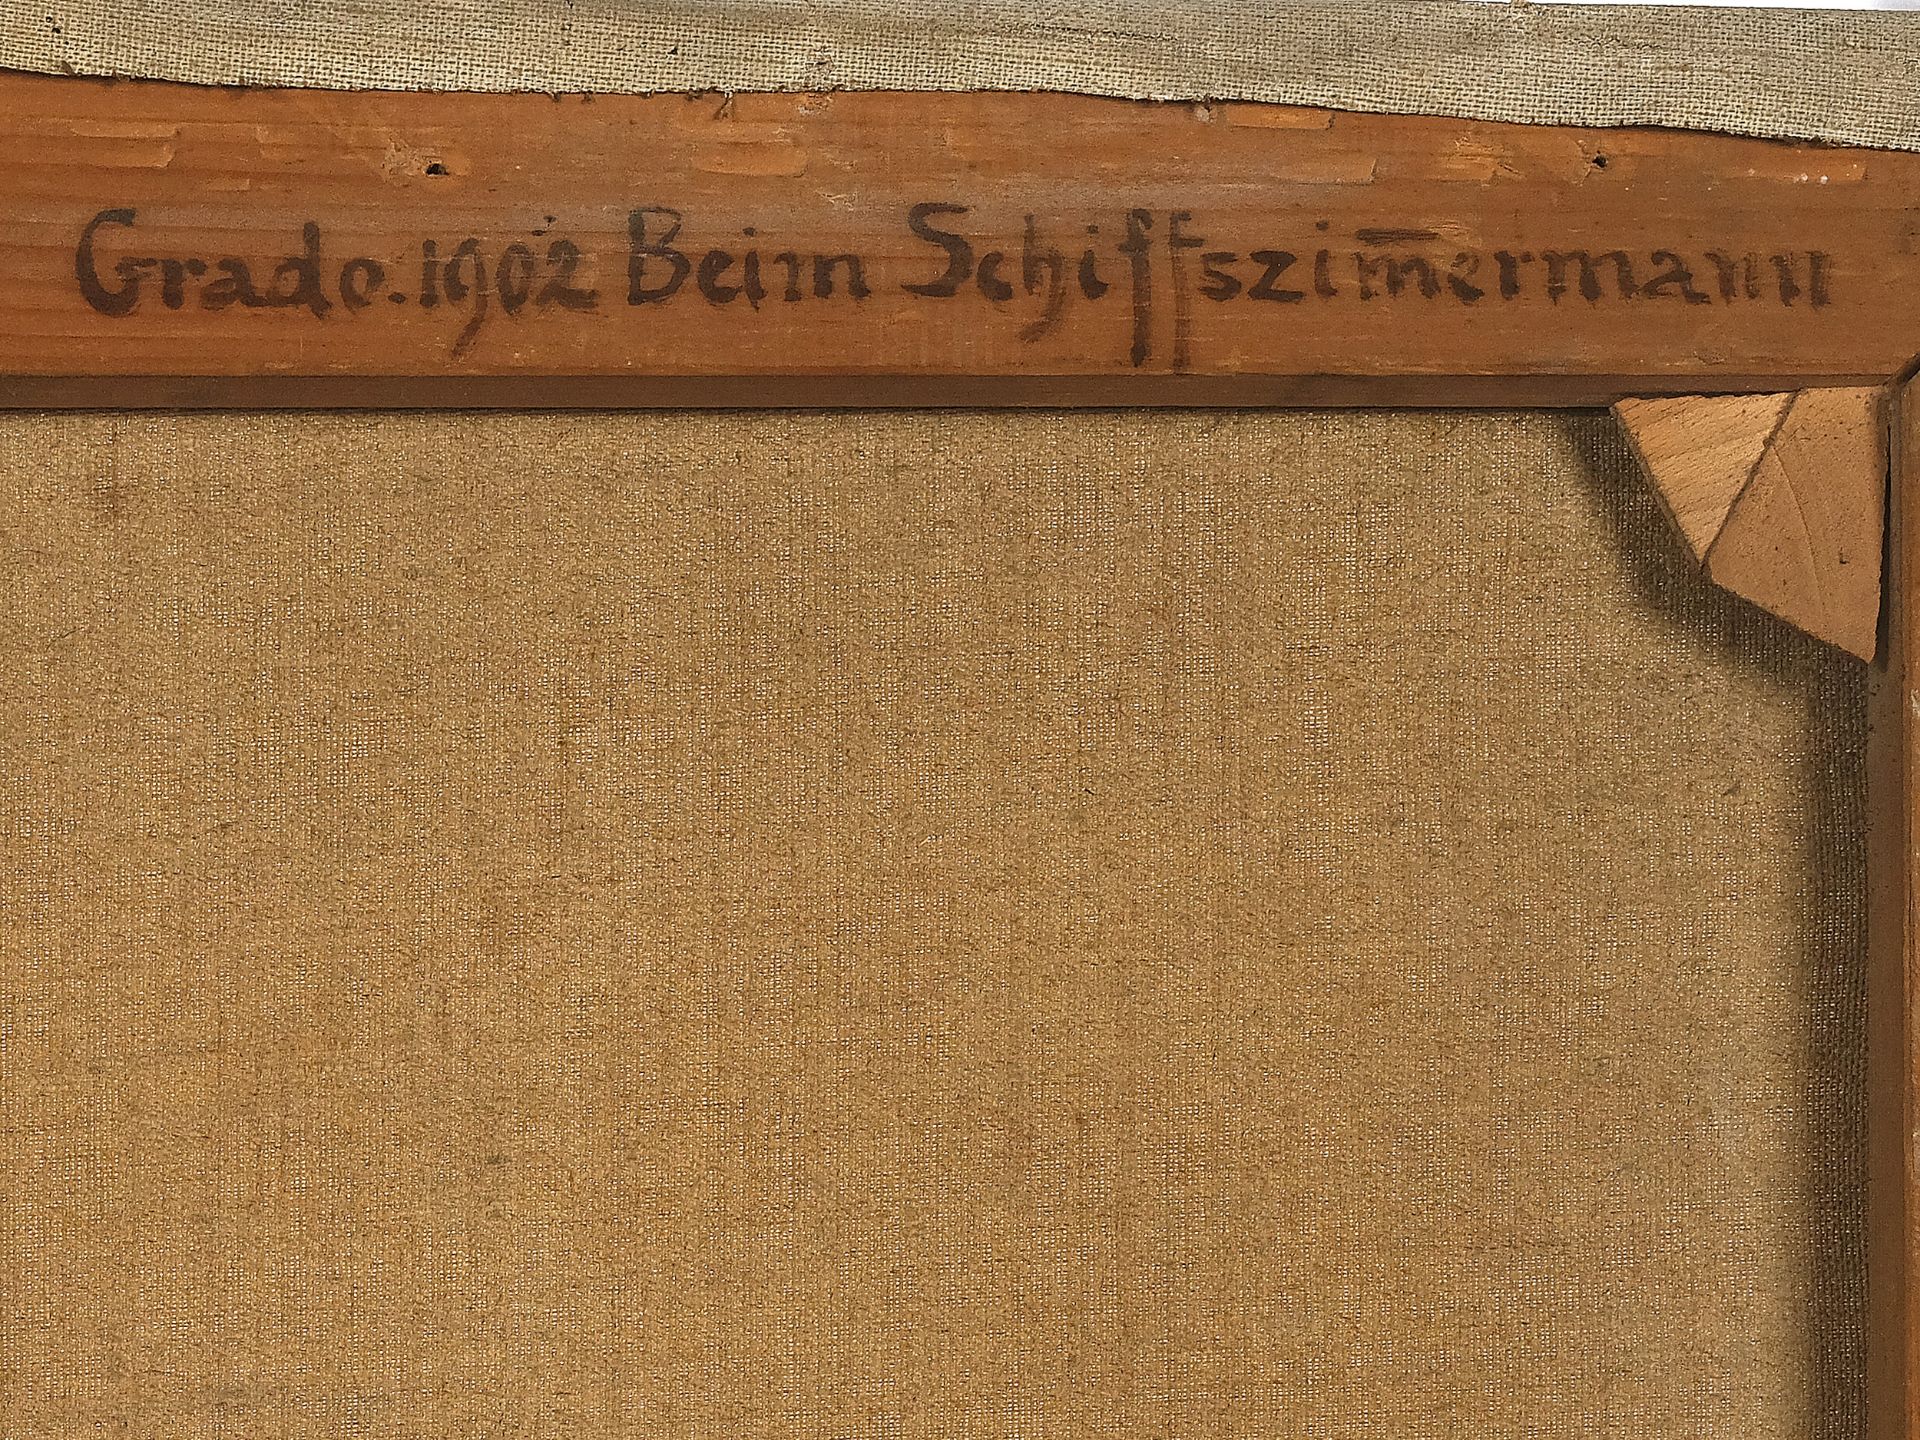 Grado. 1902 Beim Schiffszim̅ermann